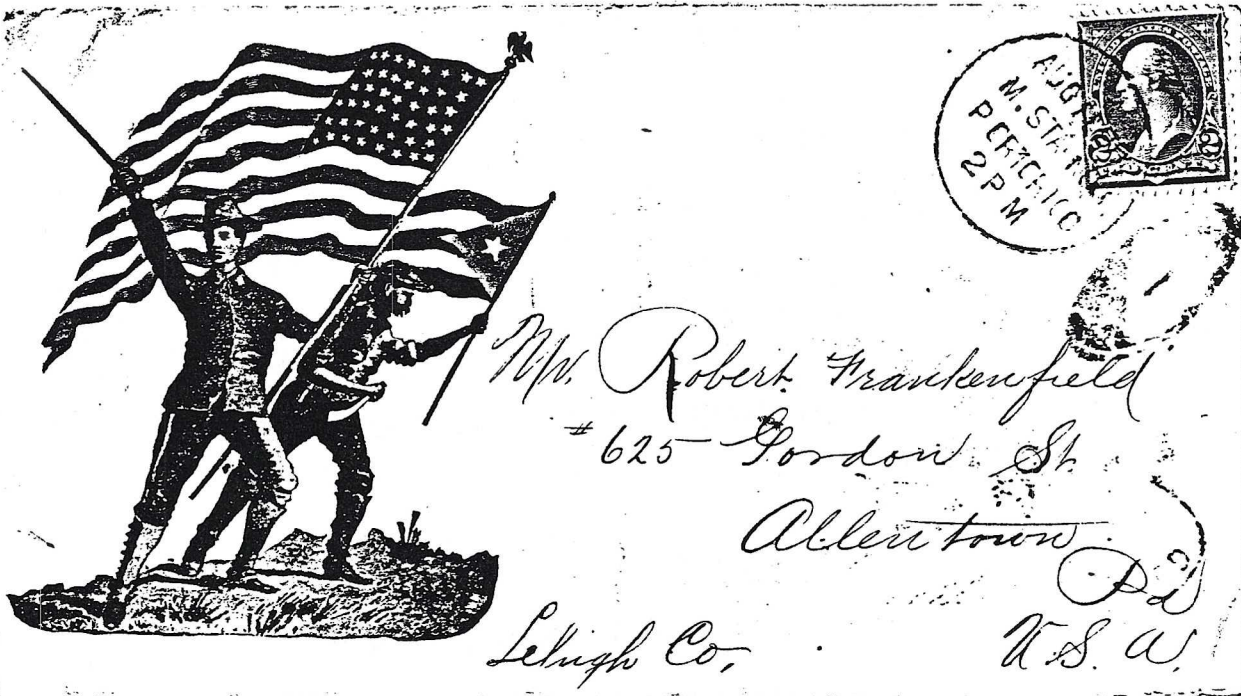 AUG
M. STA
PORTO RICO
2 P
M
2 2
Mr. Robert Frankenfield
# 625 Gordon St
Allentown
Pa
Lehigh Co, U. S. A.